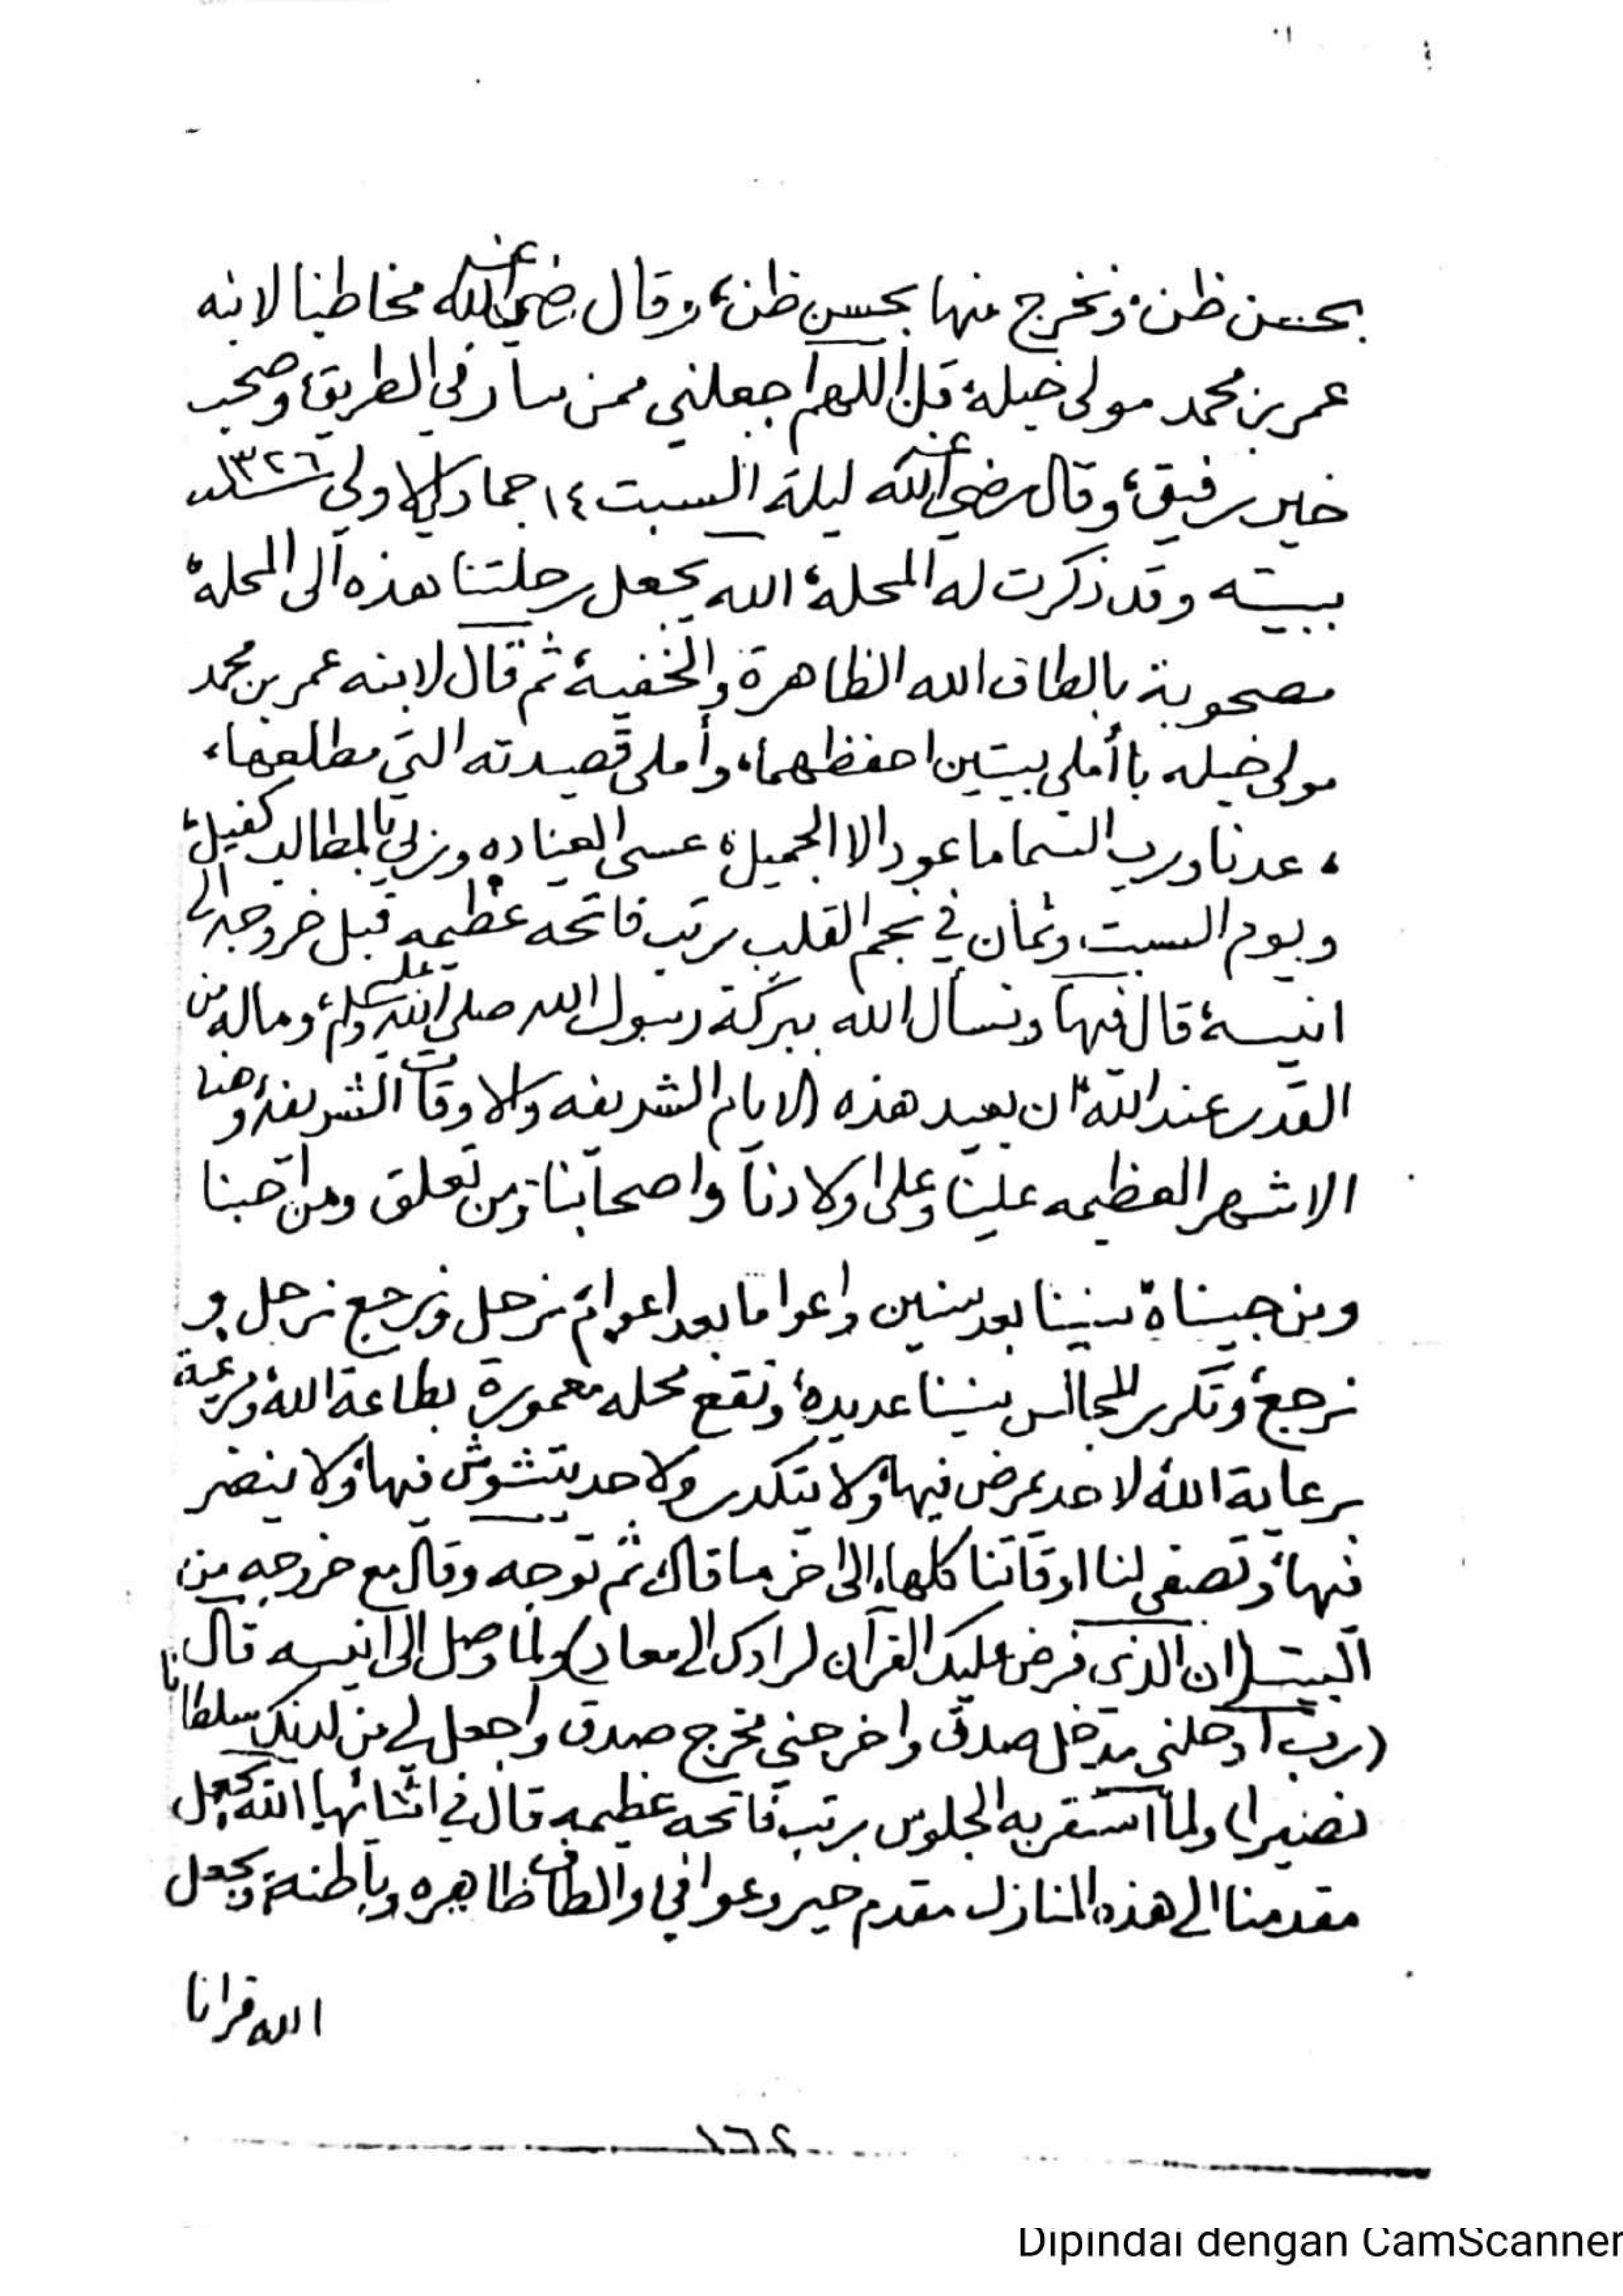 بحسن ظن، ونخرج منها بحسن ظن، وقال رضي الله عنه مخاطبا لابنه
عمر بن محمد مولى خيله، قل اللهم اجعلني ممن سار في الطريق، وصحب
خير رفيق، وقال رضي الله عنه ليلة السبت ١٤ جماد الاولى سنة ١٣٢٦
ببيته وقد ذكرت له المحلة، الله يجعل رحلتنا هذه الى المحلة،
مصحوبة بالطاف الله الظاهرة والخفية، ثم قال لابنه عمر بن محمد
مولى خيله با أملي بيتين احفظهما، وأملى قصيدته التي مطلعها،
، عدنا ورب السما ما عود الا الجميل، عسى العناده وربي بالمطالب كفيل،
ويوم السبت وثمان في نجم القلب رتب فاتحه عظيمه قبل خروجه الى
انيسة، قال فيها ونسأل الله ببركة رسول الله صلى الله عليه وسلم، وماله من
القدر عند الله، ان يعيد هذه الايام الشريفه والاوقات الشريفة، وهنا
الاشهر العظيمه علينا وعلى اولادنا واصحابنا ومن تعلق ومن احبنا
ومن حبيناه سنينا بعد سنين واعواما بعد اعوام، نرحل ونرجع نرحل و
نرجع، وتكرر المجالس سنينا عديدة، وتقع محله معمورة بطاعة الله، ومرعية
برعاية الله، لا حد يمرض فيها، ولا يتكدر ولا حد يتشوش فيها، ولا ينضر
فيها، وتصفى لنا اوقاتنا كلها، إلى اخر ما قال، ثم توجه وقال مع خروجه من
البيت (ان الذي فرض عليك القرآن لرادك الى معاد) ولما وصل الى انيسه قال
(رب ادخلني مدخل صدق واخرجني مخرج صدق واجعل لي من لدنك سلطانا
نصيرا) ولما استقر به الجلوس رتب فاتحه عظيمه قال في اثنائها الله يجعل
مقدمنا الى هذه المنازل مقدم خير وعوافي والطاف ظاهره وباطنة، ويجعل
الله قرانا
١٦٢
Dipindai dengan CamScanner